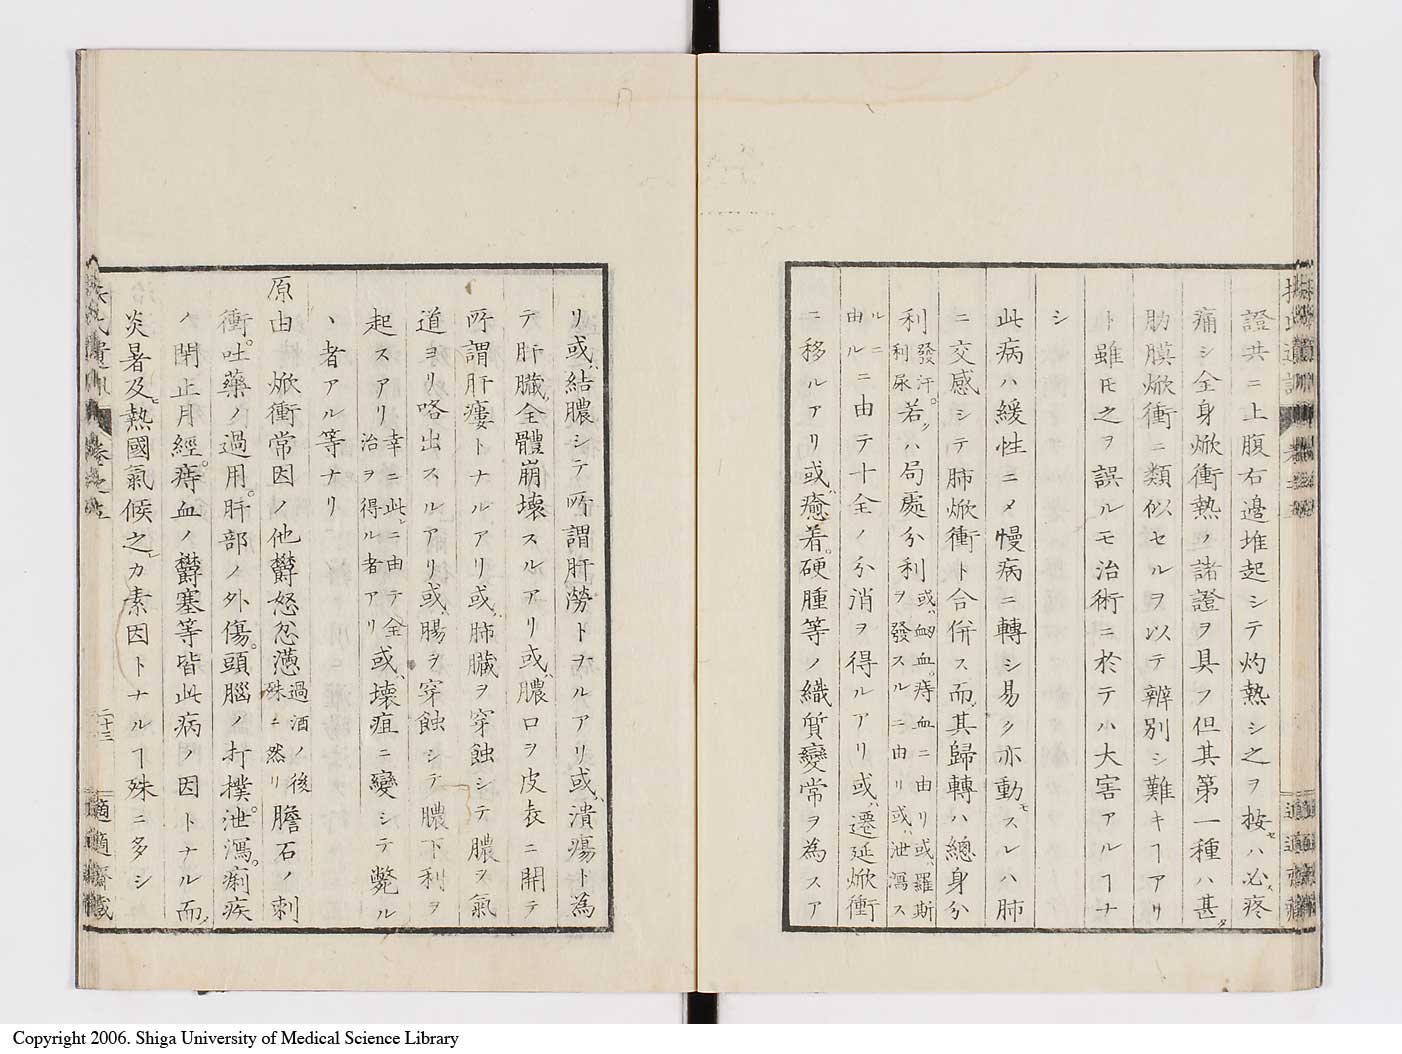 證共ニ上腹右邉堆起シテ灼熱シ之ヲ按セハ必ス疼
痛シ全身焮衝熱ノ諸證ヲ具フ但其第一種ハ甚タ
肋膜焮衝ニ類似セルヲ以テ辨別シ難キヿアリ
ト雖𪜈之ヲ誤ルモ治術ニ於テハ大害アルヿナ
シ
此病ハ緩性ニメ慢病ニ轉シ易ク亦動モスレハ肺
ニ交感シテ肺焮衝ト合併ス而其歸轉ハ總身分
利發汗利尿。若クハ局處分利或ハ衂血。痔血ニ由リ或ハ羅斯ヲ發スルニ由リ或ハ泄瀉スルニ
由ルニ由テ十全ノ分消ヲ得ルアリ或ハ遷延焮衝
ニ移ルアリ或ハ癒着。硬腫等ノ織質變常ヲ為スア
リ或ハ結膿シテ所謂肝勞トナルアリ或ハ潰瘍ト為
テ肝臓全體崩壊スルアリ或ハ膿口ヲ皮表ニ開テ
所謂肝瘻トナルアリ或ハ肺臓ヲ穿蝕シテ膿ヲ氣
道ヨリ咯出スルアリ或ハ腸ヲ穿蝕シテ膿下利ヲ
起スアリ幸ニ此ニ由テ全治ヲ得ル者アリ或ハ壊疽ニ變シテ斃ル
ヽ者アル等ナリ
原由 焮衝常因ノ他欝怒忿懣過酒ノ後殊ニ然リ膽石ノ刺
衝。吐藥ノ過用。肝部ノ外傷。頭腦ノ打撲。泄瀉。痢疾
ノ閉止月經。痔血ノ欝塞等皆此病ノ因トナル而
炎暑及ヒ熱國氣候之カ素因トナルヿ殊ニ多シ
二十三
適適齋藏